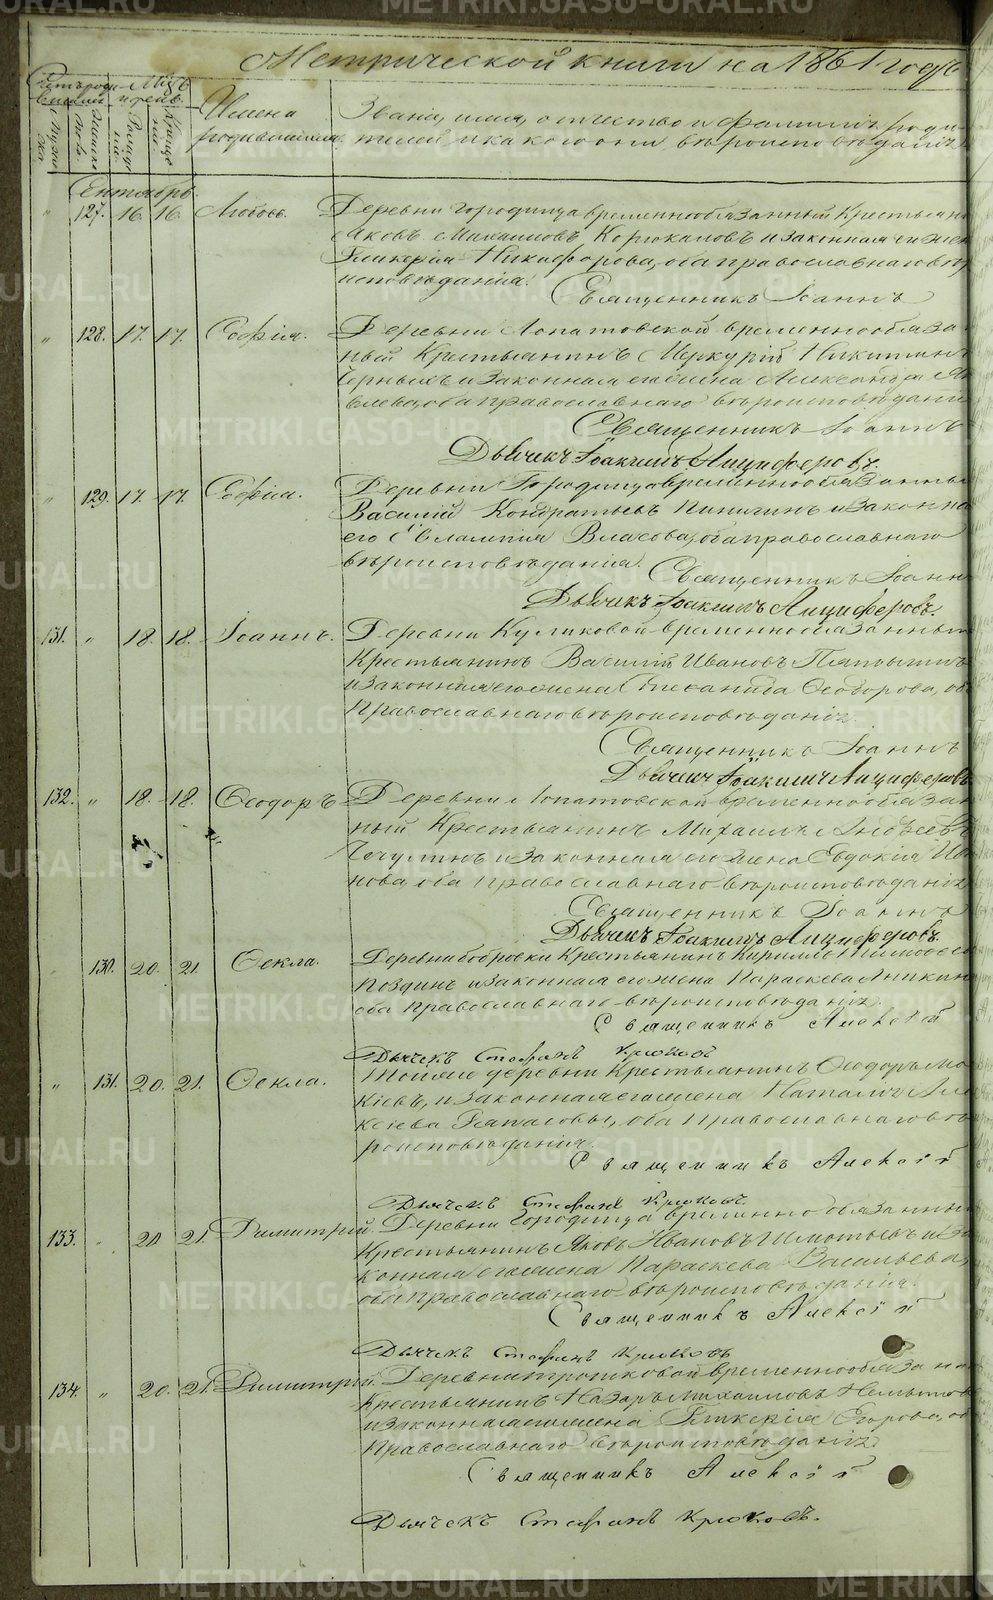 Метрической книги на 1861 годъ
Счетъ роди-
вшихся
Мѣсяцъ
и день.
Мужеска
Женска
полъ.
Рожде-
нія.
Креще-
нія.
Имена
родившихся.
Званіе, имя, отчество и фамилія роди-
телей и какого они вѣроисповѣданія
Сентябрь.
" 127. 16 16 Любовь. Деревни Городища временнообязанный Крестьяни
Яковъ Михаиловъ и законная его жен
Гликерія Никифорова, оба православнаго вѣро
исповѣданія.
Священникъ Іоаннъ
" 128. 17. 17. Софія. Деревни Лопатовской временнообяза-
ный Крестьянинъ Меркурій Никитинъ
Черныхъ и законная его жена Александра Як
влева, оба православнаго вѣроисповѣдані
Священникъ Іоаннъ
Дьячекъ Іоакимъ Анциферовъ.
" 129. 17. 17. Софія. Деревни Городища временнообязанны
Василій Кондратьевъ Пинигинъ и законна
его Евлампія Власова, оба православнаго
вѣроисповѣданія.
Священникъ Іоанн
Дьячекъ Іоакимъ Анциферовъ.
131. " 18. 18. Іоаннъ. Деревни Куликовой временнообязанный
Крестьянинъ Василій Ивановъ
и законная его жена Стеханида Ѳеодорова, об
православнаго вѣроисповѣданія.
Священникъ Іоаннъ
Дьячекъ Іоакимъ Анциферовъ
132. " 18. 18. Ѳеодоръ Деревни Лопатовской временнообязан
ный Крестьянинъ Михаилъ Андреевъ
и законная его жена Евдокія Ива
нова оба православнаго вѣроисповѣданія
Священникъ Іоаннъ
Дьячекъ Іоакимъ Анциферовъ.
130. 20. 21 Ѳекла. Деревни Бобровки Крестьянинъ Кириллъ
и законная его жена Параскева Аникин
оба православнаго вѣроисповѣданія.
Священникъ Алексій
Дьячекъ Стефанъ Крюковъ
" 131. 20. 21. Ѳекла. Той же деревни Крестьянинъ Ѳеодоръ
и законная его жена Наталія Але
ксіева оба православнаго вѣ
роисповѣданія.
Священникъ Алексій
Дьячекъ Стефанъ Крюковъ.
133. " 20 21 Димитрій. Деревни Городища временнообязанны
Крестьянинъ Яковъ Ивановъ и за
конная его жена Параскева Васильева,
оба православнаго вѣроисповѣданія.
Священникъ Алексій
Дьячекъ Стефанъ Крюковъ
134. " 20. 21. Димитрій. Деревни временнообязанн
Крестьянинъ Назаръ Михаиловъ
и законная его жена Гликерія Егорова, об
православнаго вѣроисповѣданія.
Священникъ Алексій
Дьячекъ Стефанъ Крюковъ.
METRIKI.GASO-URAL.RU